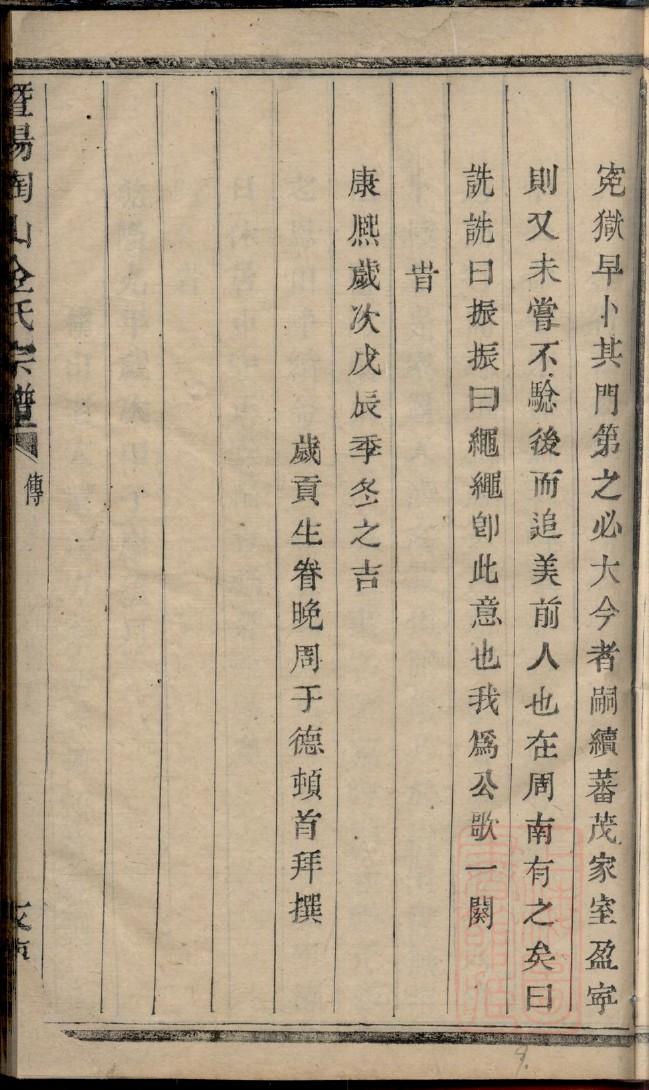 寃獄早卜其門第之必大今者嗣續蕃茂家室盈寧
則又未嘗不騐後而追美前人也在周南有之矣曰
詵詵曰振振曰繩繩卽此意也我爲公歌一闋
旹
康熈歲次戊辰季冬之吉
歲貢生眷晚周于德頓首拜撰
暨陽陶山全氏宗譜
傳